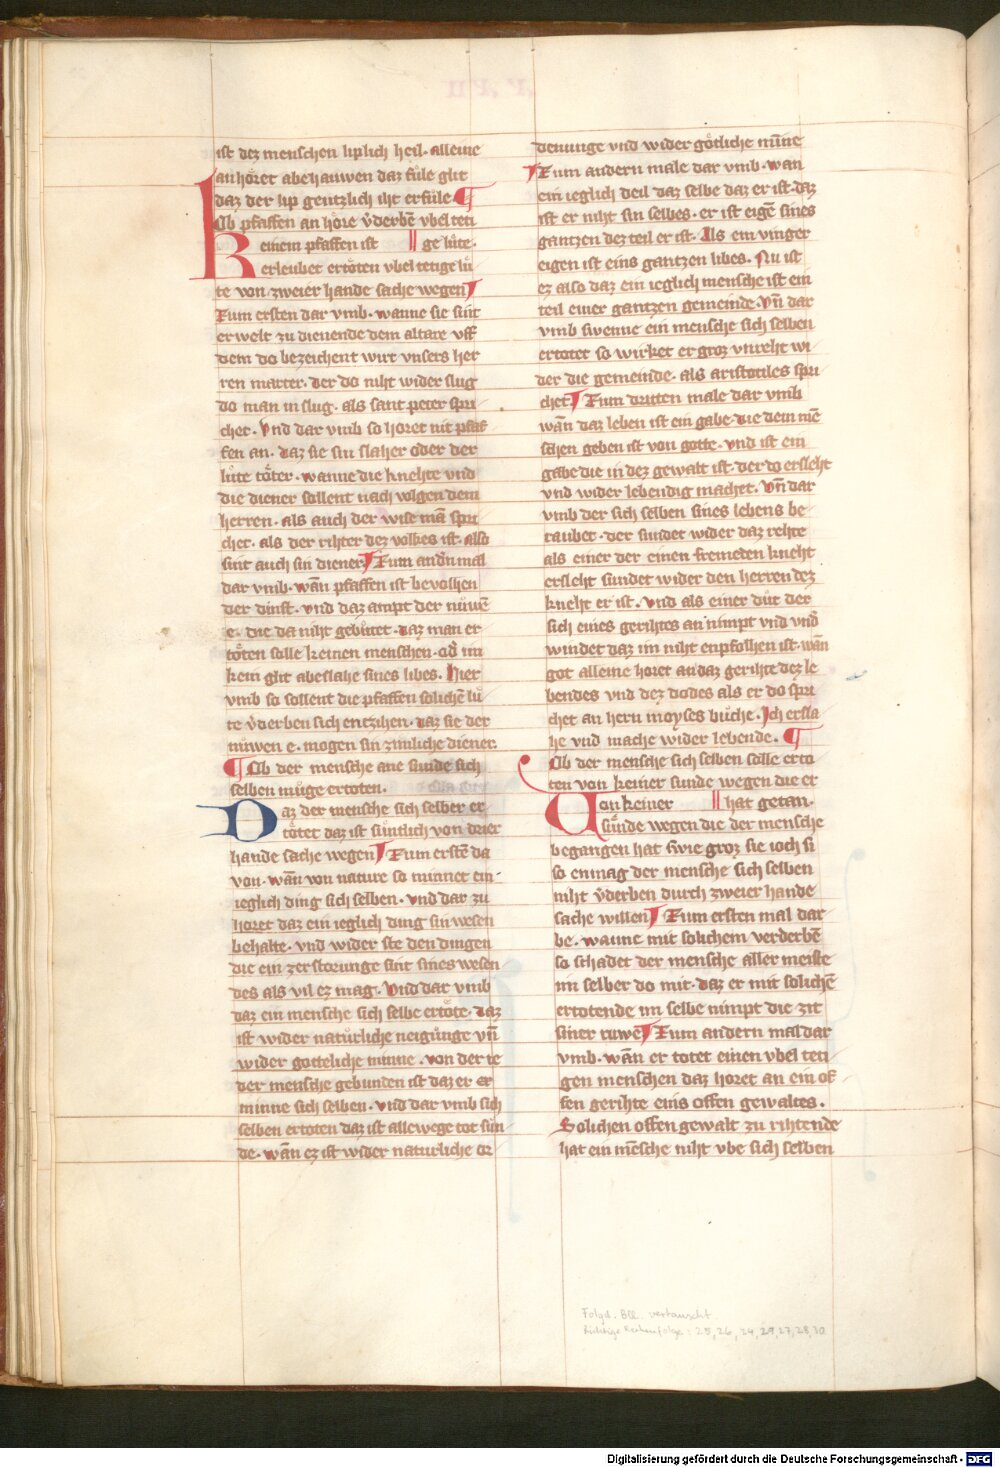 ist dez menschen liplich heil. alleine
an hoͤret abehauwen daz fule glit
daz der lip gentzlich iht erfule ¶
Ob pfaffen an hoͤre v̓derbē vbel teti
Keinem pfaffen ist ‖ ge luͤte.
erleubet ertoͤten vbel tetige luͤ
te von zweier hande sache wegen
Zum ersten dar vmb. wanne sie sint
erwelt zu dienende dem altare vff
dem do bezeichent wirt vnsers her
ren marter. der do niht wider slug
do man in slug. als sant peter spri
chet. Vnd dar vmb so horet nit pfaf
fen an. daz sie sin slaher oder der
luͤte toͤter. wanne die knehte vnd
die diener sollent nach volgen dem
herren. als auch der wise mā spri
chet. als der rihter dez volkes ist. also
sint auch sin diener Zum and̓n mal
dar vmb. wān pfaffen ist bevolhen
der dinst. vnd daz ampt der nuͤwē
e. die da niht gebuͤtet. daz man er
toͤten solle keinen menschen. od̓ im
kein glit abeslahe sines libes. Hier
vmb so sollent die pfaffen solichē luͤ
te v̓derben sich entzihen. daz sie der
nuͤwen e. mogen sin zimliche diener.
¶ Ob der mensche ane sunde sich
selben muͤge ertoten.
Daz der mensche sich selber er
toͤtet daz ist suͤntlich von drier
hande sache wegen Zum erstē da
von. wān von nature so minnet ein
ieglich ding sich selben. vnd dar zu
horet daz ein ieglich ding sin wesen
behalte. vnd wider ste den dingen
die ein zerstorunge sint sines wesen
des als vil ez mag. Vnd dar vmb
daz ein mensche sich selbe ertoͤte. daz
ist wider natuͤrliche neiguͤnge vn̄
wider gotteliche minne. von der ie
der mensche gebunden ist daz er er
minne sich selben. vnd dar vmb sich
selben ertoten daz ist allewege tot suͤn
de. wān ez ist wider naturliche or
denunge vnd wider goͤtliche mīne
Zum andern male dar vmb. wan
ein ieglich deil daz selbe daz er ist. daz
ist er niht sin selbes. er ist eigē sines
gantzen dez teil er ist. Als ein vinger
eigen ist eins gantzen libes. Nu ist
ez also daz ein ieglich mensche ist ein
teil einer gantzen gemeinde. Vn̄ dar
vmb swenne ein mensche sich selben
ertotet so wirket er groz vnreht wi
der die gemeinde. als aristotiles spri
chet. Zum dritten male dar vmb
wān daz leben ist ein gabe. die dem mē
schen geben ist von gotte. vnd ist ein
gabe die in dez gewalt ist. der do ersleht
vnd wider lebendig machet. Vn̄ dar
vmb der sich selben sines lebens be
raubet. der sundet wider daz rehte
als einer der einen fremeden kneht
ersleht sundet wider den herren dez
kneht er ist. vnd als einer duͤt der
sich eines gerihtes an nimpt vnd vnd̓
windet daz im niht enpfolhen ist. wān
got alleine horet an daz gerihte dez le
bendes vnd dez dodes als er do spri
chet an hern moyses buͤche. Ich ersla
he vnd mache wider lebende. ¶
Ob der mensche sich selben solle erto
ten von keiner sunde wegen die er
Von keiner ‖ hat getan.
suͤnde wegen die der mensche
begangen hat swie groz sie ioch si
so enmag der mensche sich selben
niht v̓derben durch zweier hande
sache willen Zum ersten mal dar
be. wanne mit solichem verderbē
so schadet der mensche aller meiste
im selber do mit. daz er mit solichē
ertotende im selbe nimpt die zit
siner ruwe Zum andern mal dar
vmb. wān er totet einen vbel teti
gen menschen daz horet an ein of
fen gerihte eins offen gewaltes.
Solichen offen gewalt zu rihtende
hat ein mēsche niht vbe sich selben
Folgd. Bll. vertauscht
Richtige Reihenfolge: 25, 26, 24, 29, 27, 28, 30
Digitalisierung gefördert durch die Deutsche Forschungsgemeinschaft - DFG